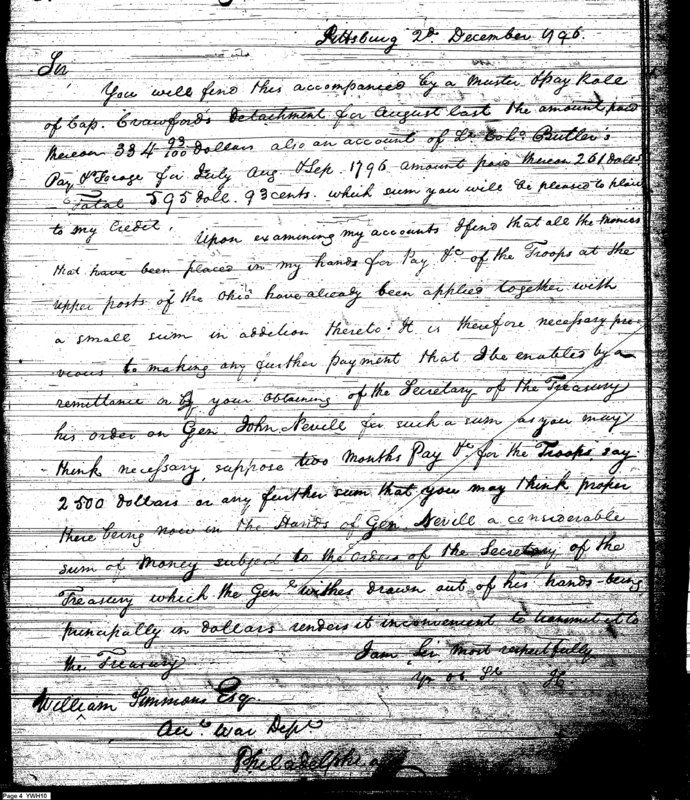 Pittsburg 2d. December 1796.
Sir
You will find this accompanied by a Muster & pay Role
of Cap. Crawford's detachment for August last the amount paid
thereon 334 93/100 dollars also an account of Lt. Colo. Butler's
Pay & Forage for July Aug. & Sep. 1796 amount paid thereon 261 dolls
Total 595 doll. 93 cents. which sum you will be pleased to place
to my Credit.
Upon examining my accounts I find that all the Monies
that have been placed in my hands for Pay &c of the Troops at the
upper posts of the Ohio have already been applied together with
a small sum in addition thereto. It is therefore necessary pre-
vious to making any further payment that I be enabled by a
remittance or by your obtaining of the Secretary of the Treasury
his order on Gen. John Nevill for such a sum as you may
think necessary, suppose two months Pay &c. for the Troops say
2500 dollars or any further sum that you may think proper
there being now in the Hands of Gen. Nevill a considerable
sum of Money subject to the orders of the Secretary of the
Treasury which the Genl. wishes drawn out of his hands - being
principally in dollars renders it inconvenient to transmit it to
the Treasury
I am Sir most respectfully
Yr. Ob. St.
William Simmons Esq.
Acct. War Dept.
Philadelphia
Page 4 YWH10